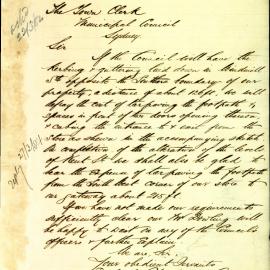 The Town Clerk
Municipal Council
Sydney
Sir
If the Council will have the
Kerbing & guttering laid down in Windmill
St opposite the Northern boundary of our
property, a distance of about 120ft. we will
defray the cost of tarpaving the footpath &
spaces in front of two doors opening thereon
& curbing the entrance to & east from the
store as shown in the accompanying sketch
On completion of the alteration of the levels
of Kent St we shall also be glad to
bear the expense of tarpaving the footpath
from the South West corner of our store to
our gateway about 215 ft
You have not made our requirements
sufficiently clear our Mr Dowling will
be happy to wait on any of the Council's
officers & further explain
We are, Sir,
Your obedient Servants